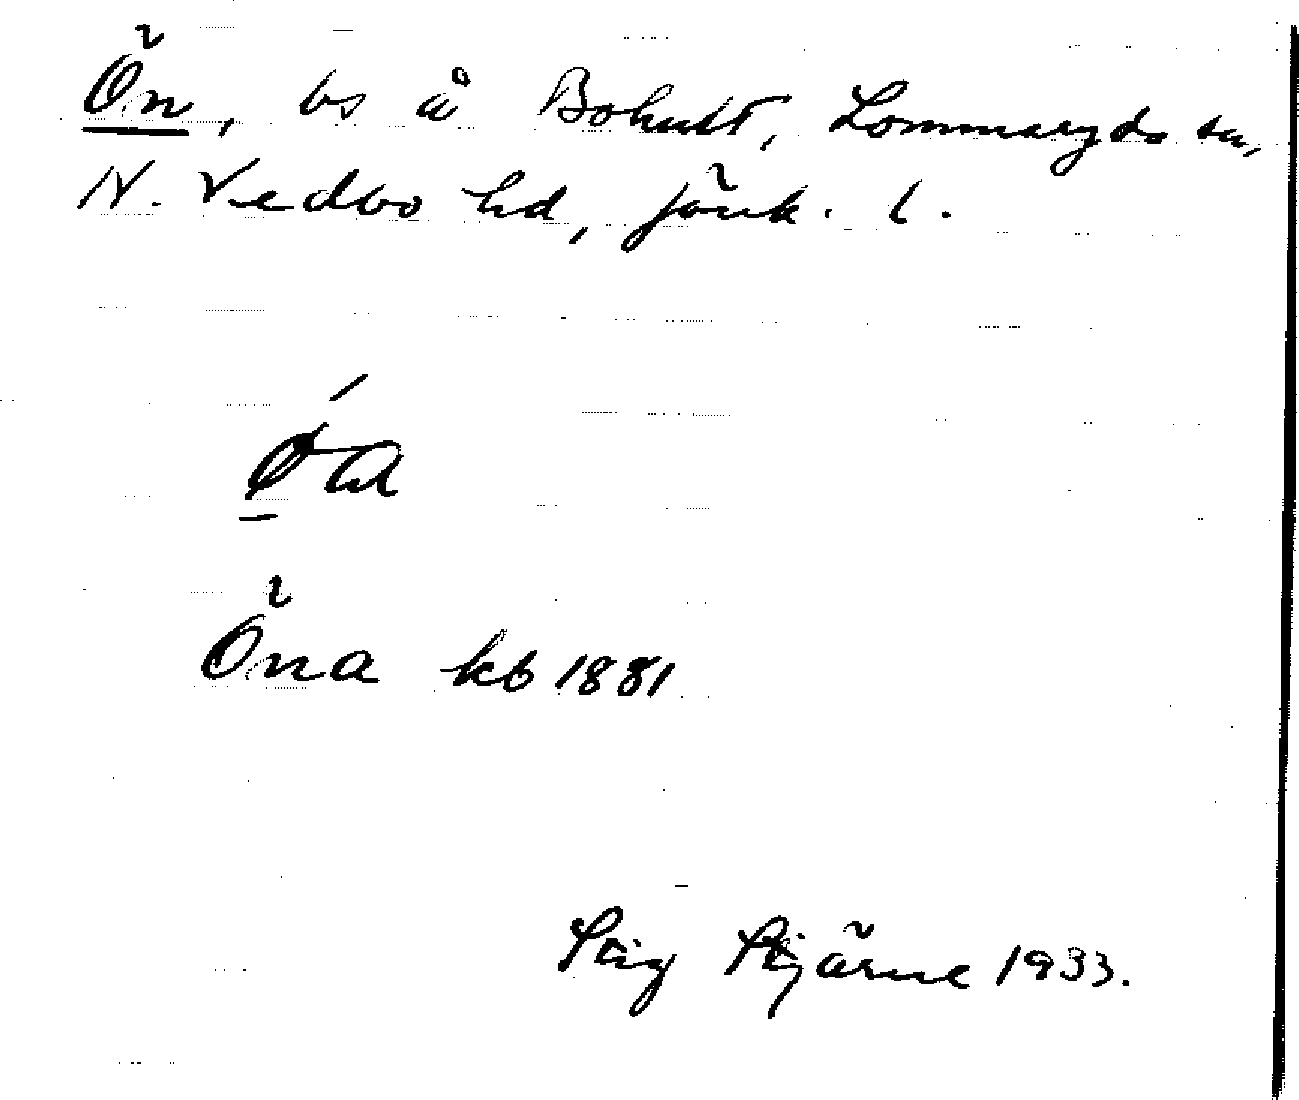 Ön, bs å Bohult, Lommaryds sn,
N. Vedbo hd, Jönk. l.
Öna kb 1881
Stig Stjärne 1933.